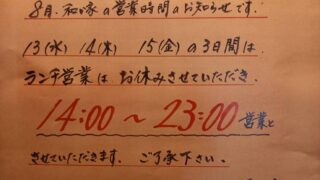 8月.和み家の営業時間のお知らせです.
13(水) 14(木) 15(金)の3日間は.
ランチ営業は お休みさせていただき.
14:00 ～ 23:00 営業と
させていただきます. ご了承下さい.